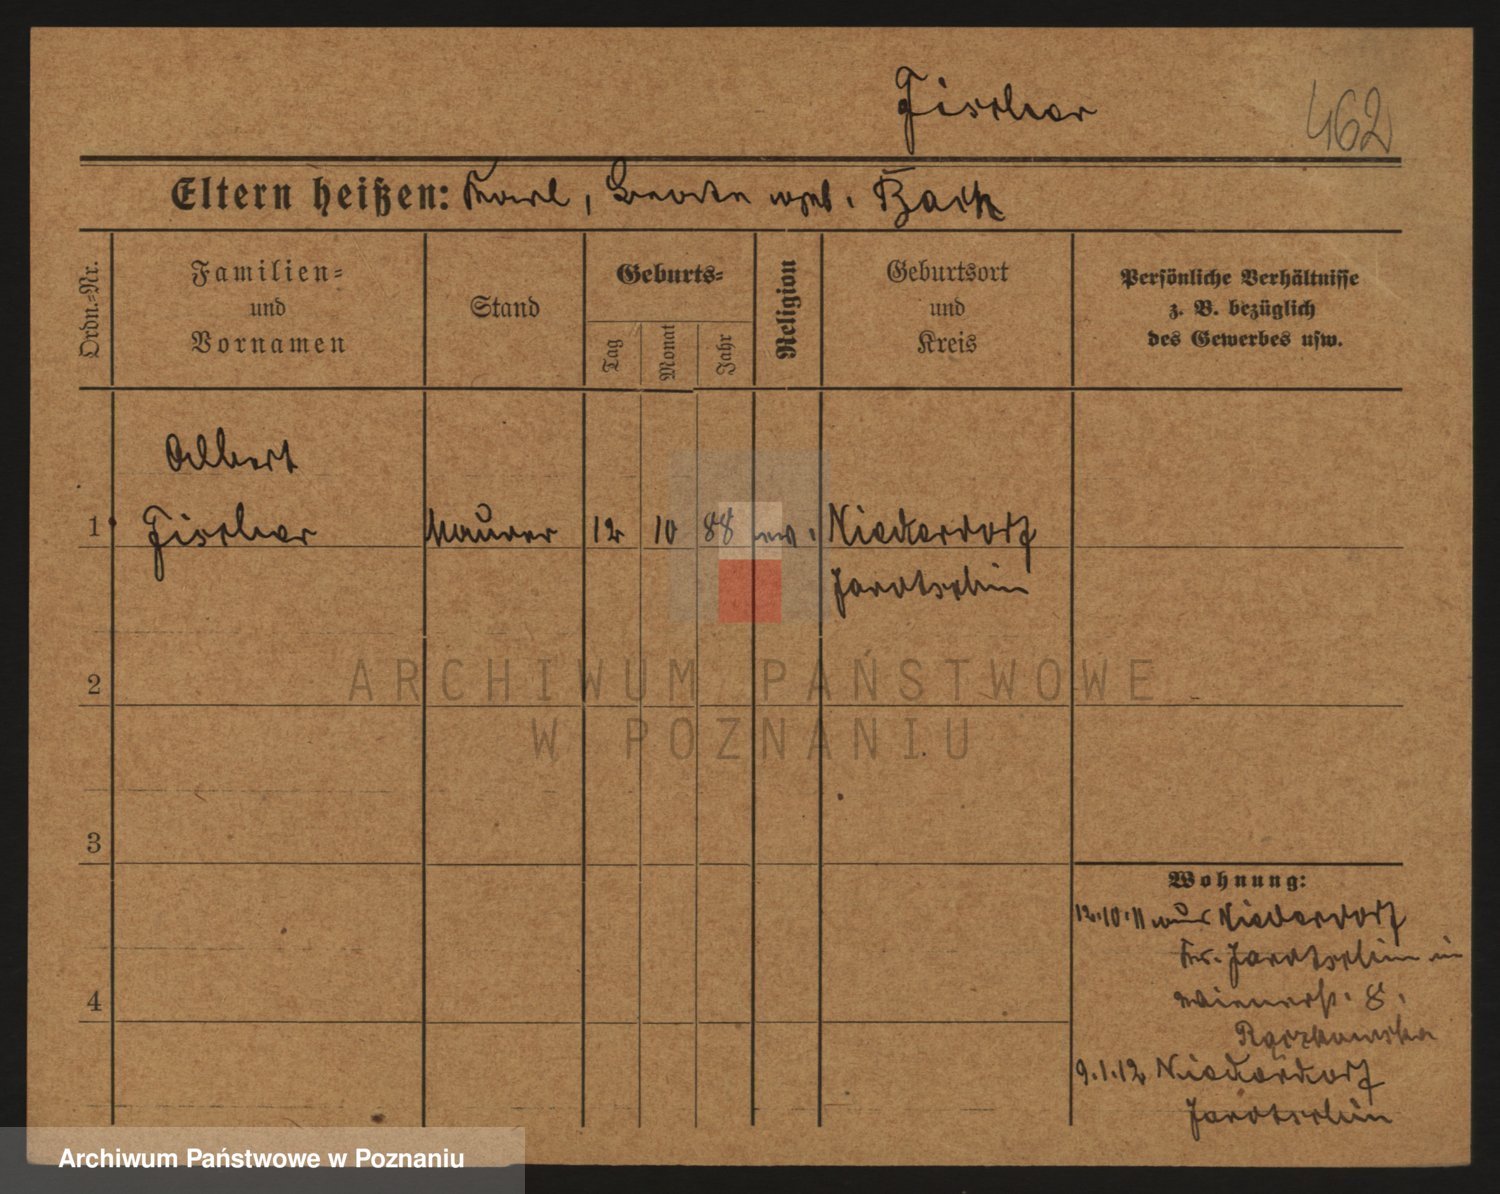 Fischer
462
Eltern heißen: Karl, Beate geb. Back
Ordn.=Nr.
Familien=
und
Vornamen
Stand
Geburts=
Tag
Monat
Jahr
Religion
Geburtsort
und
Kreis
Persönliche Verhältnisse
z. B. bezüglich
des Gewerbes usw.
Albert
1 Fischer Maurer 12 10 88 ev. Niederdorf
Jarotschin
2
ARCHIWUM PAŃSTWOWE
W POZNANIU
3
Wohnung:
12.10.11 aus Niederdorf
Kr. Jarotschin in
4
Wienerstr. 8.
9.1.12 Niederdorf
Jarotschin
Archiwum Państwowe w Poznaniu